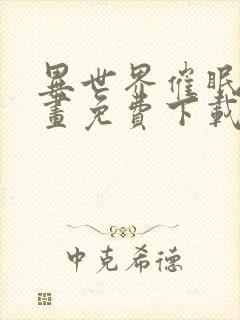 異世界催眠
畫免費下載
中克希德